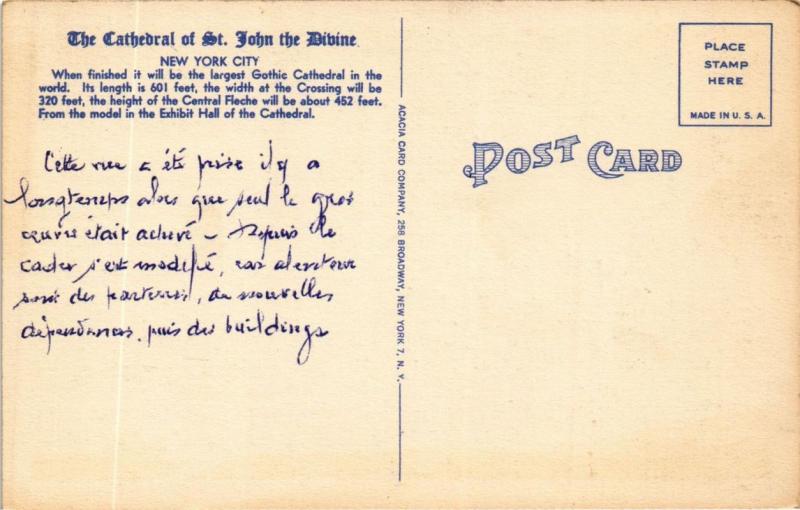 The Cathedral of St. John the Divine
NEW YORK CITY
When finished it will be the largest Gothic Cathedral in the
world. Its length is 601 feet, the width at the Crossing will be
320 feet, the height of the Central Fleche will be about 452 feet.
From the model in the Exhibit Hall of the Cathedral.
Cette vue a été prise il y a
longtemps alors que seul le gros
œuvre était achevé - Depuis le
cadre s'est modifié, car alentour
sont des parterres, de nouvelles
dépendances, puis des buildings
ACACIA CARD COMPANY, 258 BROADWAY, NEW YORK 7, N. Y.
POST CARD
PLACE
STAMP
HERE
MADE IN U. S. A.